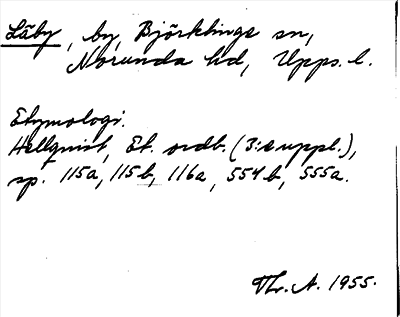 Läby, by, Björklinge sn,
Norunda hd, Upps. l.
Etymologi.
Hellquist, Et. ordb. (3:e uppl.),
sp. 115a, 115b, 116a, 554b, 555a.
Th. A. 1955.